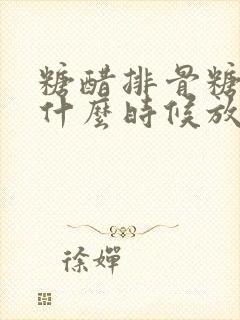 糖醋排骨糖
什麼時候放
徐嬋